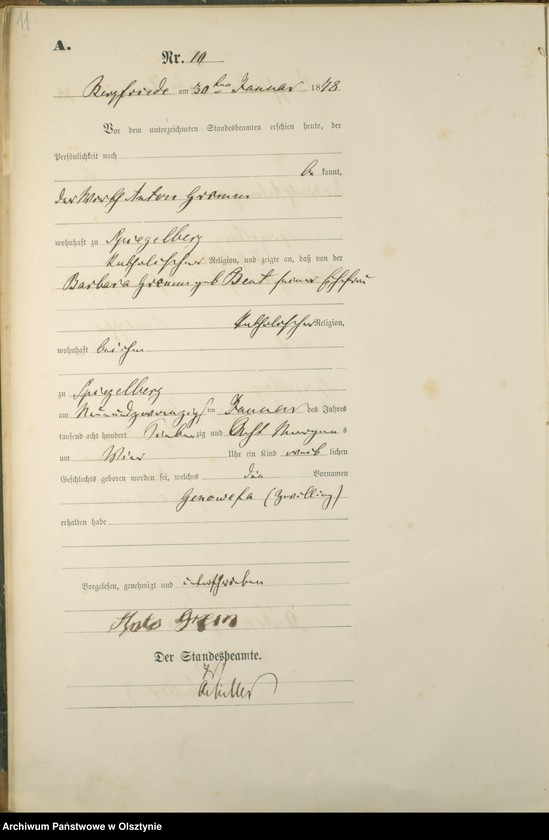 11
A.
Nr. 10
Bergfriede am 30ten Januar 1878
Vor dem unterzeichneten Standesbeamten erschien heute, der
Persönlichkeit nach
be kannt,
der Wirth Anton Gremm
wohnhaft zu Spiegelberg
katholischer Religion, und zeigte an, daß von der
Barbara Gremm geb seiner Ehefrau
katholischer Religion,
wohnhaft bei ihm
zu Spiegelberg
am Neunundzwanzigsten Januar des Jahres
tausend acht hundert Siebenzig und Acht Morgens
um Vier Uhr ein Kind weib lichen
Geschlechts geboren worden sei, welches die Vornamen
Genowefa (Zwilling)
erhalten habe
Vorgelesen, genehmigt und unterschrieben
Der Standesbeamte.
Archiwum Państwowe w Olsztynie